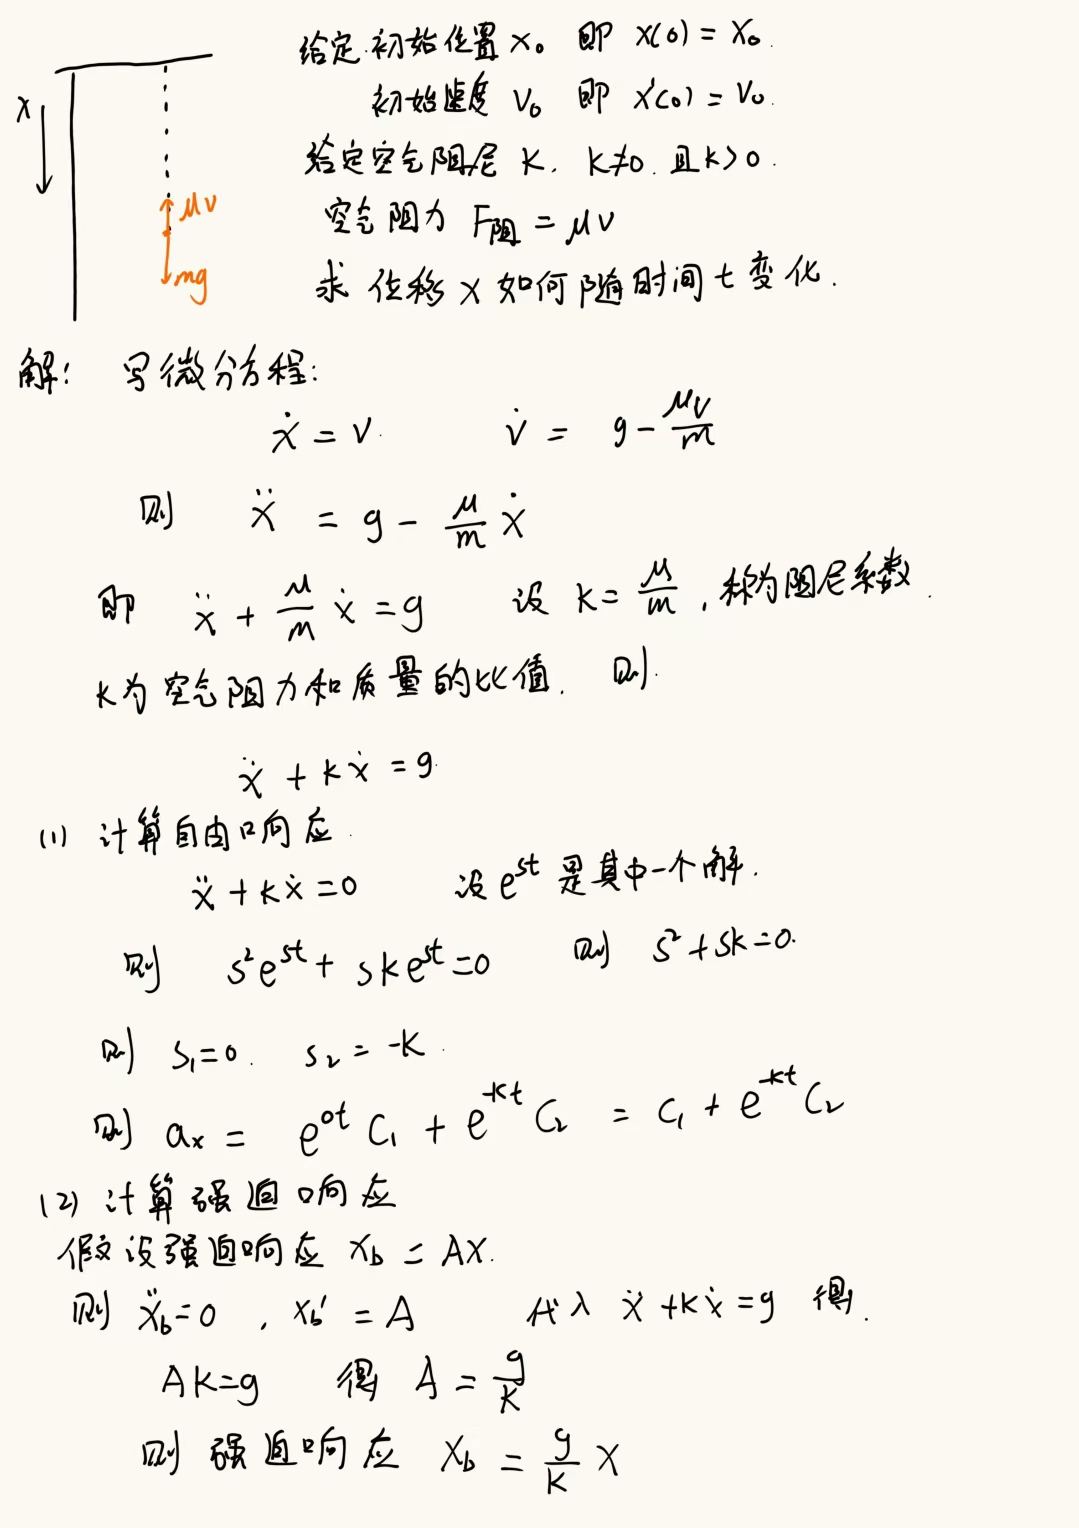 给定初始位置 x₀ 即 x(0) = x₀.
初始速度 v₀ 即 x'(0) = v₀.
给定空气阻尼 k. k≠0. 且k>0.
空气阻力 F阻 = μv
求 位移 x 如何随时间 t 变化.
x
μv
mg
解: 写微分方程:
ẋ = v. v̇ = g - μv/m
则 ẍ = g - μ/m ẋ
即 ẍ + μ/m ẋ = g 设 k = μ/m , 称为阻尼系数.
k为空气阻力和质量的比值. 则.
ẍ + kẋ = g.
(1) 计算自由响应.
ẍ + kẋ = 0 设 e^{st} 是其中一个解.
则 s²e^{st} + ske^{st} = 0 则 s² + sk = 0.
则 s₁ = 0. s₂ = -k.
则 aₓ = e^{0t} C₁ + e^{-kt} C₂ = C₁ + e^{-kt} C₂
(2) 计算强迫响应
假设强迫响应 x_b = AX.
则 ẍ_b = 0 , x_b' = A 代入 ẍ + kẋ = g 得.
Ak = g 得 A = g/k
则 强迫响应 x_b = g/k x